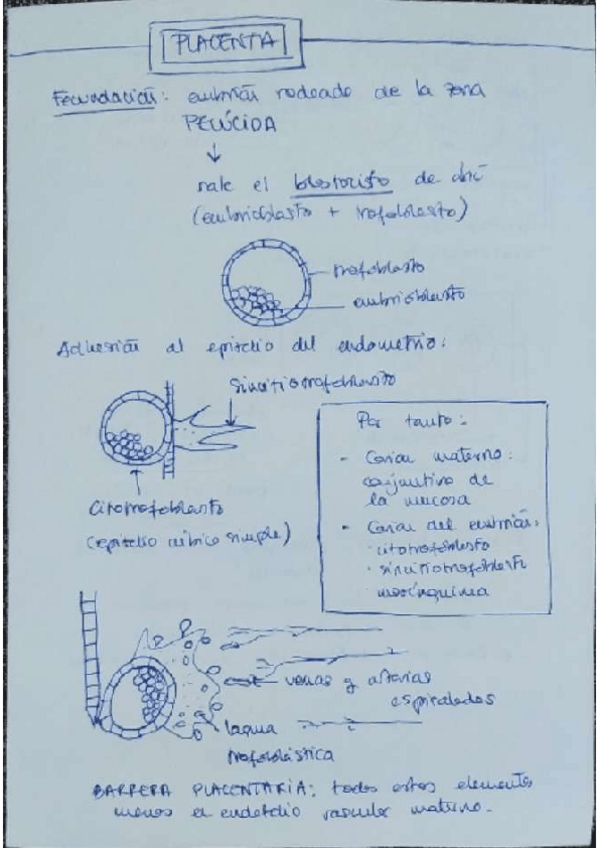 PLACENTA
Fecundación: embrión rodeado de la zona
PELÚCIDA
sale el blastocisto de ahí
(embrioblasto + trofoblasto)
trofoblasto
embrioblasto
Adhesión al epitelio del endometrio:
Sincitiotrofoblasto
Citotrofoblasto
(epitelio cúbico simple)
Por tanto:
- Corion materno:
conjuntivo de
la mucosa
- Corion del embrión:
· citotrofoblasto
· sincitiotrofoblasto
· mesénquima
venas y arterias
espiraladas
laguna
trofoblástica
BARRERA PLACENTARIA: todos estos elementos
menos el endotelio vascular materno.